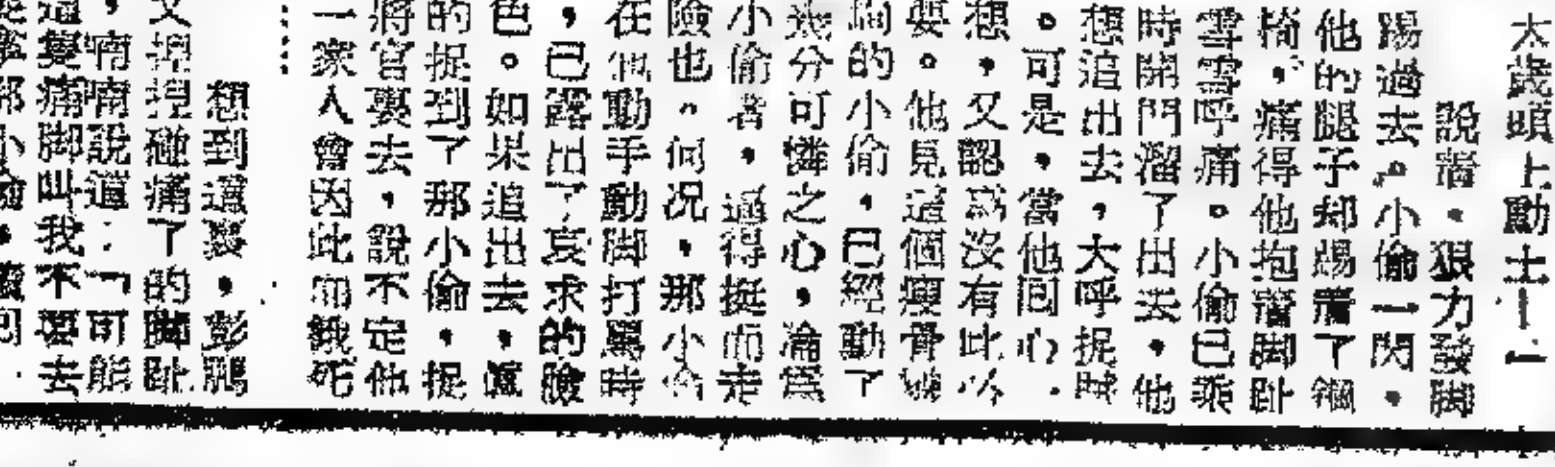 太歲頭上動土！」
說着，狠力發脚
踢過去。小偷一閃，
他的腿子却踢着了鋼
椅，痛得他抱着脚趾
雪雪呼痛。小偷已乘
時開門溜了出去，他
想追出去，大呼捉賊
。可是，當他回心
想，又認爲沒有此必
要。他見這個瘦骨
的小偷，已經動了
幾分可憐之心，淪爲
小偷者，逼得挺而走
險也。何况，那小偷
在他動手動脚打罵時
，已露出了哀求的臉
色。如果追出去，眞
的捉到了那小偷，捉
將官裏去，說不定他
一家人會因此而餓死
……
想到這裏，彭鵬
又捏捏碰痛了的脚趾
，喃喃說道：「可能
這隻痛脚叫我不要去
那小偷，